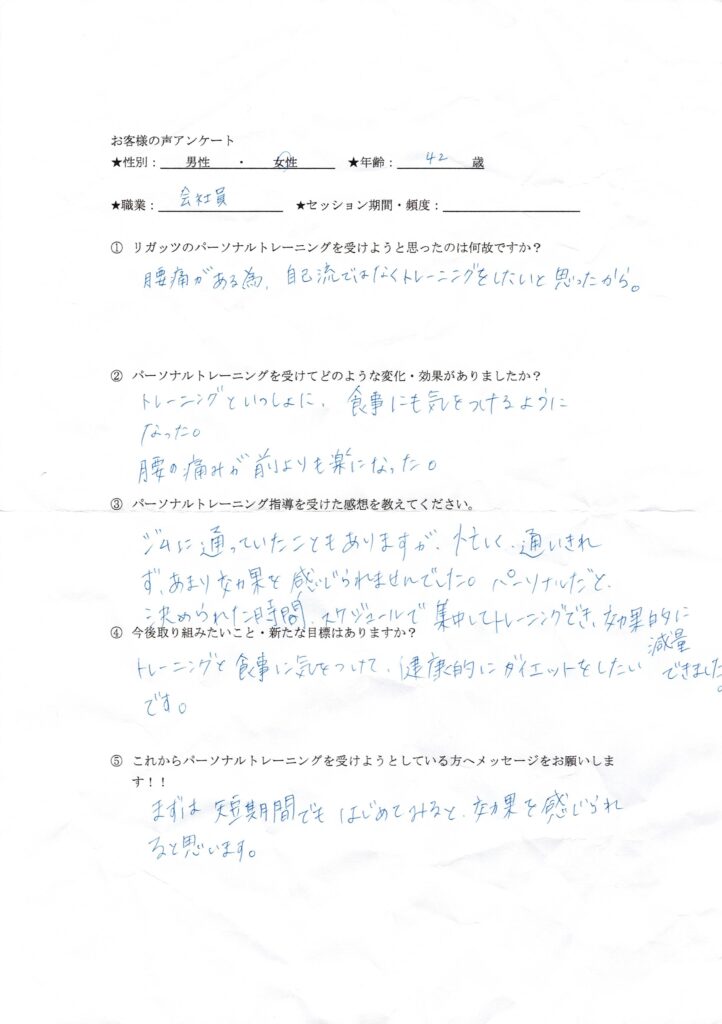 お客様の声アンケート
★性別：　男性　・　女性　　★年齢：　42　歳
★職業：　会社員　　★セッション期間・頻度：
① リガッツのパーソナルトレーニングを受けようと思ったのは何故ですか？
腰痛がある為、自己流ではなくトレーニングをしたいと思ったから。
② パーソナルトレーニングを受けてどのような変化・効果がありましたか？
トレーニングといっしょに、食事にも気をつけるように
なった。
腰の痛みが前よりも楽になった。
③ パーソナルトレーニング指導を受けた感想を教えてください。
ジムに通っていたこともありますが、忙しく、通いきれ
ず、あまり効果を感じられませんでした。パーソナルだと、
決められた時間、スケジュールで集中してトレーニングでき、効果的に
減量
できました。
④ 今後取り組みたいこと・新たな目標はありますか？
トレーニングと食事に気をつけて、健康的にダイエットをしたい
です。
⑤ これからパーソナルトレーニングを受けようとしている方へメッセージをお願いしま
す！！
まずは短期間でもはじめてみると、効果を感じられ
ると思います。